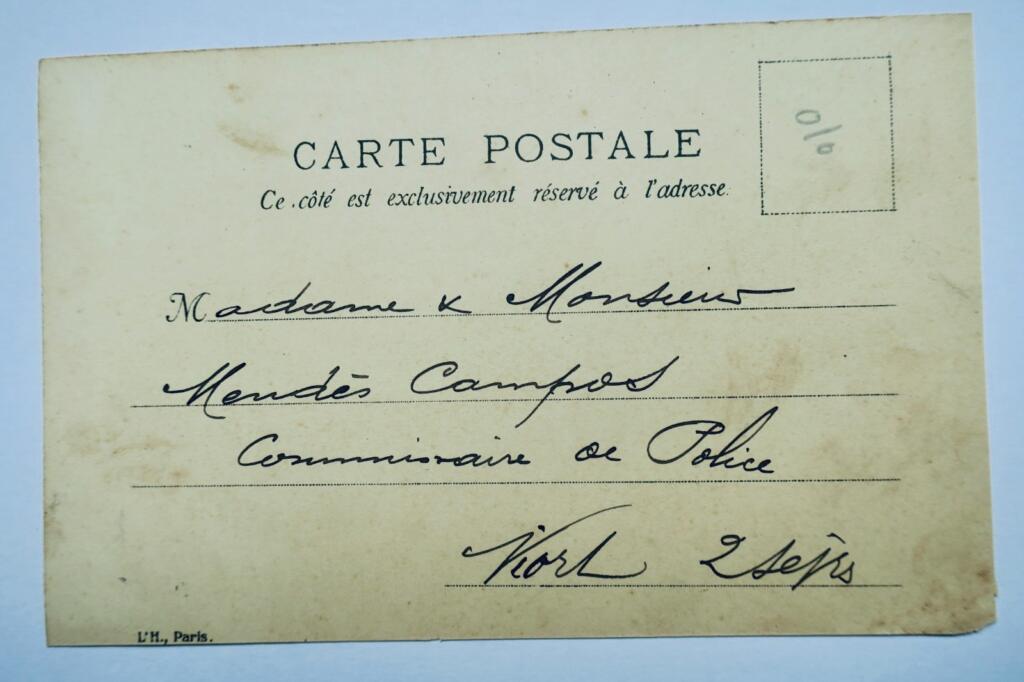 CARTE POSTALE
Ce côté est exclusivement réservé à l'adresse.
Madame & Monsieur
Mendès Campos
Commissaire de Police
Niort 2 Sèvres
L'H., Paris.